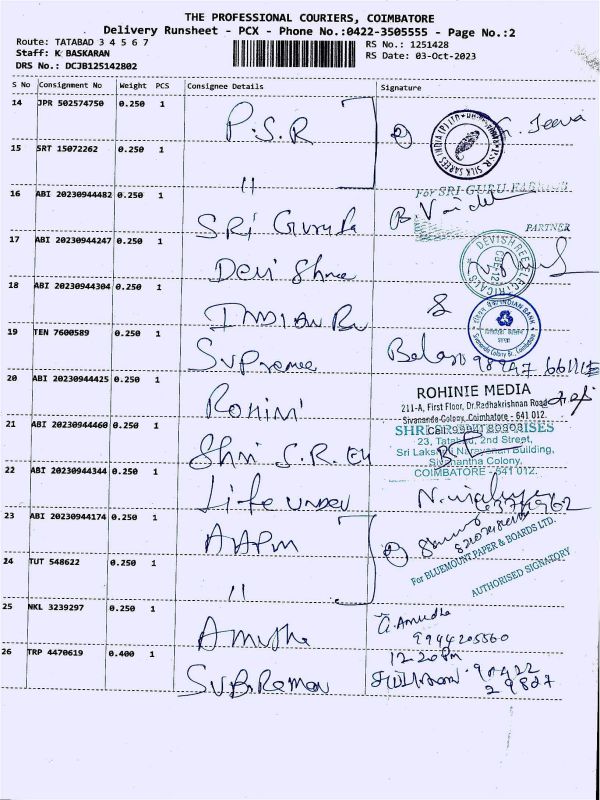 THE PROFESSIONAL COURIERS, COIMBATORE
Delivery Runsheet - PCX - Phone No.:0422-3505555 - Page No.:2
Route: TATABAD 3 4 5 6 7
RS No.: 1251428
Staff: K BASKARAN
RS Date: 03-Oct-2023
DRS No.: DCJB125142802
S No Consignment No Weight PCS Consignee Details Signature
14 JPR 502574750 0.250 1 P.S.R
15 SRT 15072262 0.250 1 "
P.S.R. SILK SAREES INDIA (P) LTD
For SRI GURU FABRICS
16 ABI 20230944482 0.250 1 SRi Guru
PARTNER
17 ABI 20230944247 0.250 1 Devi Shree
DEVISHREE ELECTRICALS
18 ABI 20230944304 0.250 1 INDIAN
INDIAN BANK
Sivananda Colony Br., Coimbatore
19 TEN 7600589 0.250 1 Supreme
20 ABI 20230944425 0.250 1 Rohini
ROHINIE MEDIA
211-A, First Floor, Dr.Radhakrishnan Road
Sivananda Colony, Coimbatore - 641 012.
21 ABI 20230944460 0.250 1 Shri S.R.
23, Tatabad, 2nd Street,
Sri Lakshmi Narayanan Building,
Sivanantha Colony,
COIMBATORE - 641 012.
22 ABI 20230944344 0.250 1 Life
23 ABI 20230944174 0.250 1
24 TUT 548622 0.250 1 "
For BLUEMOUNT PAPER & BOARDS LTD.
AUTHORISED SIGNATORY
25 NKL 3239297 0.250 1 Amutha
A. Amudha
9944205560
12.20 Pm
26 TRP 4470619 0.400 1